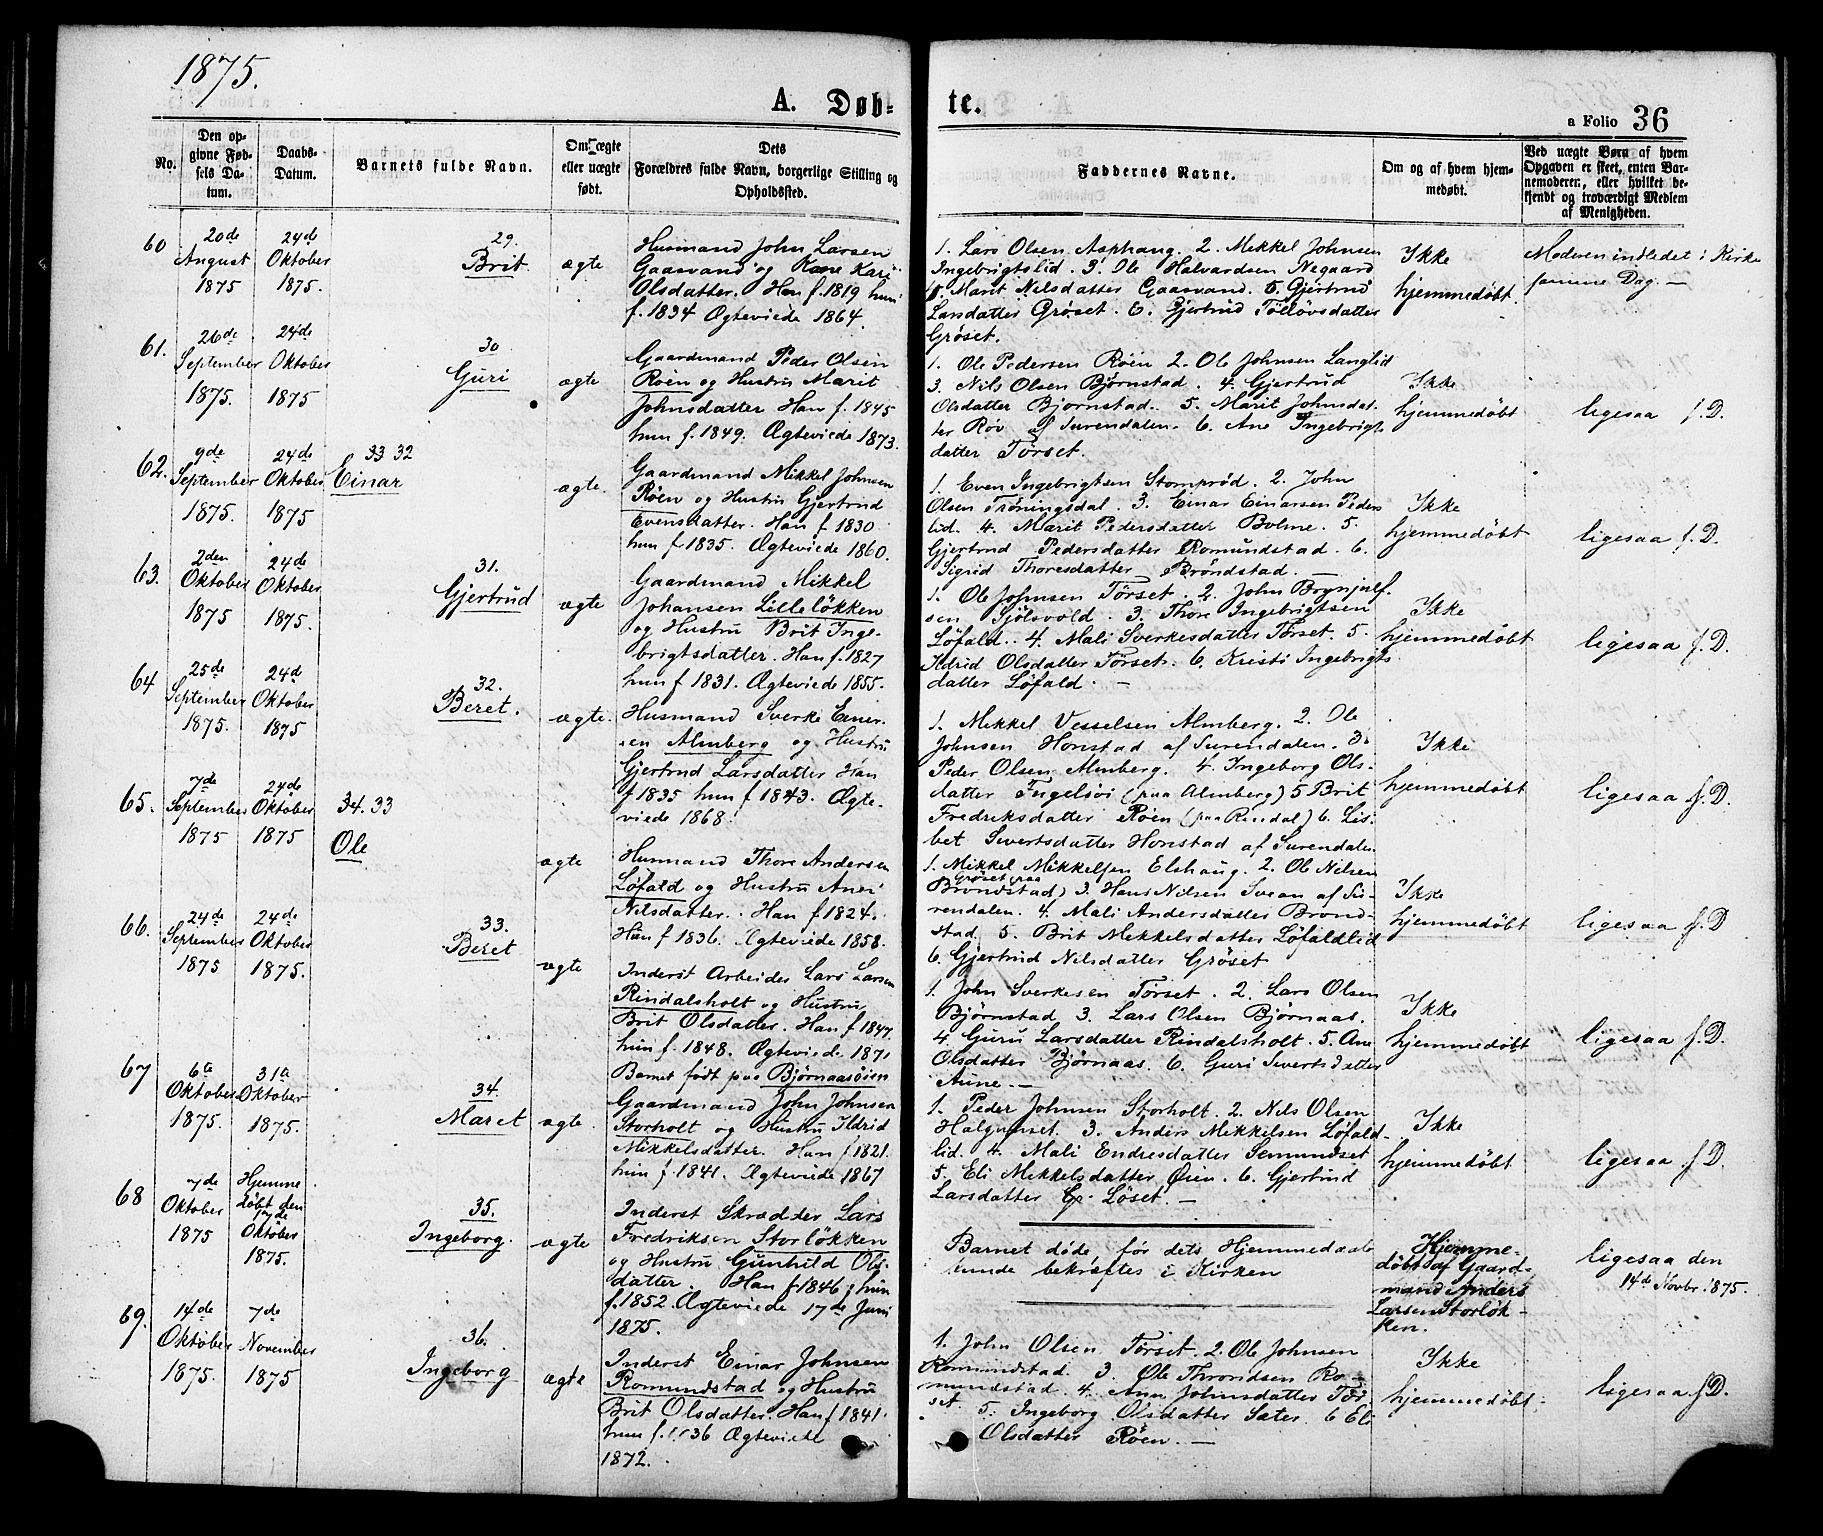 1875.
A. Døb-
te.
a Folio 36
No.
Den op-
givne Fød-
sels Da-
tum.
Daabs-
Datum.
Barnets fulde Navn.
Om ægte
eller uægte
født.
Dets
Forældres fulde Navn, borgerlige Stilling og
Opholdssted.
Faddernes Navne.
Om og af hvem hjem-
medøbt.
Ved uægte Børn af hvem
Opgaven er skeet, enten Bar-
nemoderen, eller hvilket be-
kjendt og troværdigt Medlem
af Menigheden.
60
20de
August
1875
24de
Oktober
1875.
29.
Brit
ægte
Husmand John Larsen
Gaasvand og Kone Kari
Olsdatter. Han f. 1819 hun
f. 1834 Ægteviede 1864.
1. Lars Olsen Asphaug. 2. Mikkel Johnsen
Ingebrigtslid. 3. Ole Halvardsen Negaard
4. Marit Nilsdatter Gaasvand. 5. Gjertrud
Larsdatter Grøset. 6. Gjertrud Tölløvsdatter
Grøset.
Ikke
hjemmedøbt.
Moderen indledet i Kirke
samme Dag. —
61.
26de
September
1875.
24de
Oktober
1875
30
Guri
ægte
Gaardmand Peder Olsen
Röen og Hustru Marit
Johnsdatter Han f. 1845
hun f. 1849. Ægteviede 1873.
1. Ole Pedersen Röen 2. Ole Johnsen Langlid
3. Nils Olsen Bjørnstad. 4. Gjertrud
Olsdatter Bjørnstad. 5. Marit Johnsdat-
ter Röv af Surendalen. 6. Ane Ingebrigt-
datter Törset.
Ikke
hjemmedøbt
ligesaa s. D.
62.
9de
September
1875.
24de
Oktober
1875
33 32
Einar
ægte.
Gaardmand Mikkel Johnsen
Röen og Hustru Gjertrud
Evensdatter. Han f. 1830
hun f. 1835. Ægteviede 1860.
1. Even Ingebrigtsen Stomprød. 2. John
Olsen Trøningsdal. 3. Einar Einarsen Peders-
lid. 4. Marit Pedersdatter Bolme. 5.
Gjertrud Pedersdatter Romundstad. 6.
Sigrid Thoresdatter Brøndstad. —
Ikke
hjemmedøbt
ligesaa s. D.
63.
2den
Oktober
1875
24de
Oktober
1875.
31.
Gjertrud
ægte
Gaardmand Mikkel
Johansen Lilleløkken
og Hustru Brit Inge-
brigtsdatter. Han f. 1827
hun f 1831. Ægteviede 1855.
1. Ole Johnsen Törset. 2. John Brynjulf-
sen Sjölsvold. 3. Thore Ingebrigtsen
Löfald. 4. Mali Sverkesdatter Törset. 5.
Ildrid Olsdatter Törset. 6. Kristi Ingebrigts-
datter Löfald. —
Ikke
hjemmedøbt
ligesaa s. D.
64
25de
September
1875.
24d
Oktober
1875
32.
Beret.
ægte.
Husmand Sverke Einar-
sen Almberg og Hustru
Gjertrud Larsdatter Han
f 1835 hun f 1843. Ægte-
viede 1868.
1. Mikkel Vesselsen Almberg. 2. Ole
Johnsen Honstad af Surendalen. 3.
Peder Olsen Almberg. 4. Ingeborg Ols-
datter Ingelsöi (paa Almberg) 5 Brit
Fredriksdatter Röen (paa Rindal) 6. Lis-
bet Sivertsdatter Honstad af Surendalen
Ikke
hjemmedøbt
ligesaa s. D.
65.
7de
September
1875
24de
Oktober
1875
34. 33
Ole
ægte
Husmand Thore Andersen
Löfald og Hustru Ane
Nilsdatter. Han f 1824.
Hun f 1836. Ægteviede 1858.
1. Mikkel Mikkelsen Elshaug. 2. Ole Nilsen
Grøset (paa
Brøndstad) 3. Hans Nilsen Svean af Su-
rendalen. 4. Mali Andersdatter Brønd-
stad. 5. Brit Mikkelsdatter Löfaldlid
6. Gjertrud Nilsdatter Grøset
Ikke
hjemmedøbt
ligesaa s. D
66.
24de
September
1875
24de
Oktober
1875.
33.
Beret
ægte
Inderst Arbeider Lars Larsen
Rindalsholt og Hustru
Brit Olsdatter. Han f 1847.
hun f. 1848. Ægteviede 1871
Barnet født paa Bjørnaasøien
1. John Sverkesen Törset. 2. Lars Olsen
Bjørnstad 3. Lars Olsen Bjørnaas.
4. Guru Larsdatter Rindalsholt. 5. Ane
Olsdatter Bjørnaas. 6. Guri Sivertsdatter
Aune. —
Ikke
hjemmedøbt
ligesaa s. D.
67
6te
Oktober
1875.
31te
Oktober
1875.
34.
Maret
ægte.
Gaardmand John Johnsen
Storholt og Hustru Ildrid
Mikkelsdatter. Han f 1821.
hun f. 1841. Ægteviede 1867
1. Peder Johnsen Storholt. 2. Nils Olsen
Halgunset. 3. Anders Mikkelsen Löfald-
lid. 4. Mali Endresdatter Semundset
5. Eli Mikkelsdatter Øien. 6. Gjertrud
Larsdatter Løset. —
Ikke
hjemmedøbt
ligesaa s. D.
68
7de
Oktober
1875
Hjemme
døbt den
17de
Oktober
1875.
35.
Ingeborg.
ægte
Inderst Skrædder Lars
Fredriksen Storløkken
og Hustru Gunhild Ols-
datter. Han f 1846, hun
f. 1852. Ægteviede 17de Juni
1875.
Barnet døde, før dets Hjemmedaab
kunde bekræftes i Kirken
Hjemme-
døbt af Gaard-
mand Anders
Larsen Storløk-
ken.
ligesaa den
14de Novbr. 1875.
69.
14de
Oktober
1875.
7de
November
1875
36.
Ingeborg
ægte
Inderst Einar Johnsen
Romundstad og Hustru
Brit Olsdatter. Han f 1841.
hun f. 1836 Ægteviede
1872.
1. John Olsen Törset. 2. Ole Johnsen
Romundstad. 3. Ole Throndsen Ro-
mundstad. 4. Ane Johnsdatter Tør-
set. 5. Ingeborg Olsdatter Sæter. 6 Eli
Olsdatter Röen. —
Ikke
hjemmedøbt.
ligesaa s. D.